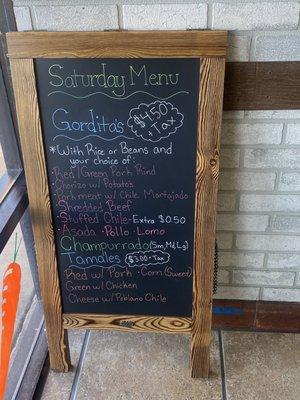 Saturday Menu
Gordita's $4.50 + Tax
*With Rice or Beans and
your choice of:
·Red/Green Pork Rind
·Chorizo w/ Potato's
·Pork meat w/ Chile Martajado
·Shredded Beef
·Stuffed Chile-Extra $0.50
·Asada ·Pollo ·Lomo
Champurrado (Sm, Md, Lg)
Tamales $3.00 + Tax
Red w/ Pork · Corn (Sweet)
Green w/ Chicken
Cheese w/ Poblano Chile